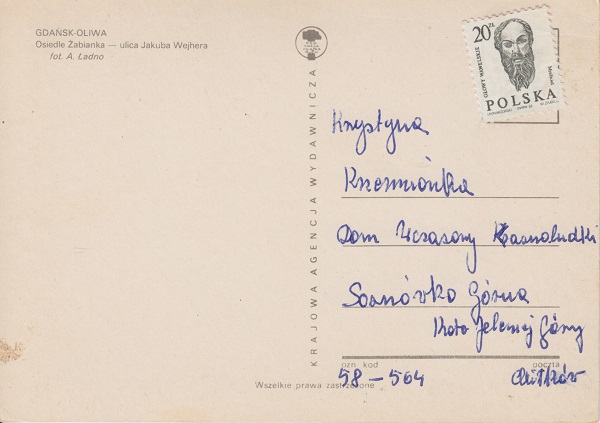 GDAŃSK-OLIWA
Osiedle Żabianka — ulica Jakuba Wejhera
fot. A. Ładno
KRAJOWA AGENCJA WYDAWNICZA
Wszelkie prawa zastrzeżone
20 ZŁ
GŁOWY WAWELSKIE
POLSKA
Krystyna
Krzemiónka
Dom Wczasowy Krasnoludki
Sosnówka Górna
Koło Jeleniej Góry
ozn kod poczta
58-564